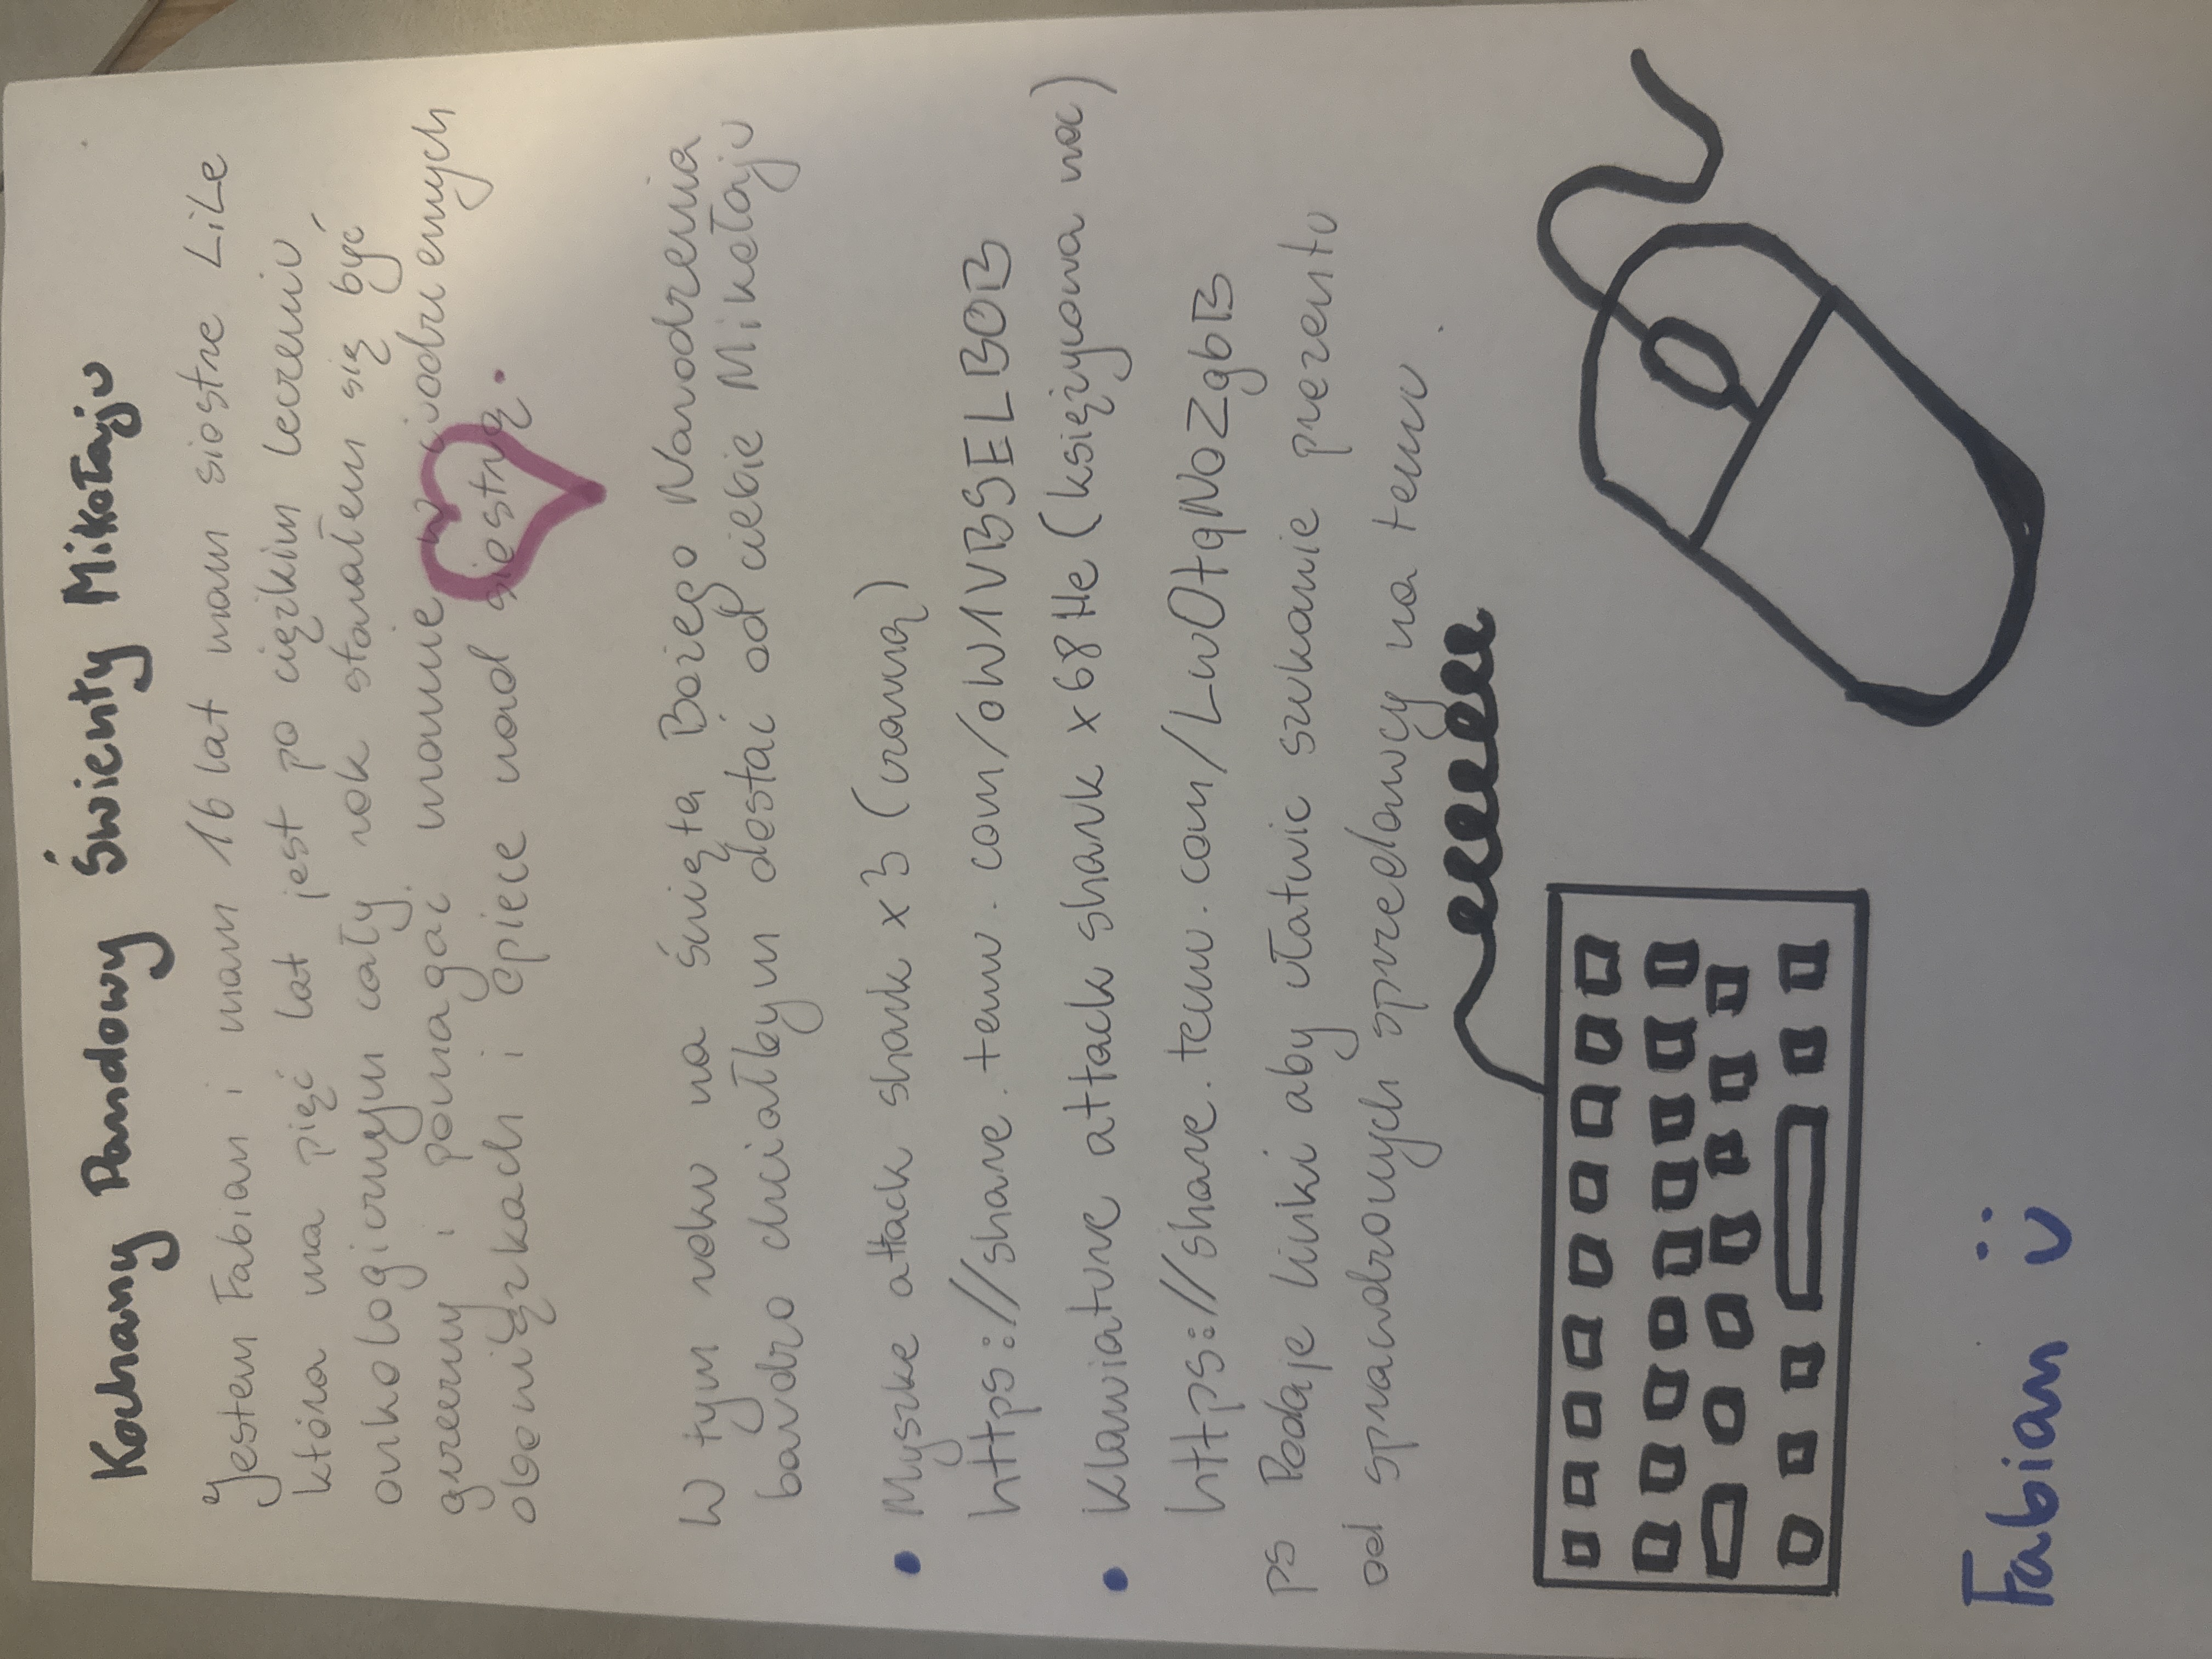 Kochany Pandowy Świenty Mikołaju
Jestem Fabian i mam 16 lat mam siostre Lile
która ma pięć lat jest po ciężkim leczeniu
onkologicznym cały rok starałem się być
grzeczny i pomagać mamie w codziennych
obowiązkach i opiece nad siostrą.
W tym roku na Święta Bożego Narodzenia
bardzo chciałbym dostać od ciebie Mikołaju
• Myszke attack shark x3 (czarną)
https://share.temu.com/oW1VBSELBOB
• Klawiature attack shark x68He (księżycowa noc)
https://share.temu.com/LwOtqNoZgbB
PS Podaje linki aby ułatwic szukanie prezentu
od sprawdzonych sprzedawcy na temu.
Fabian